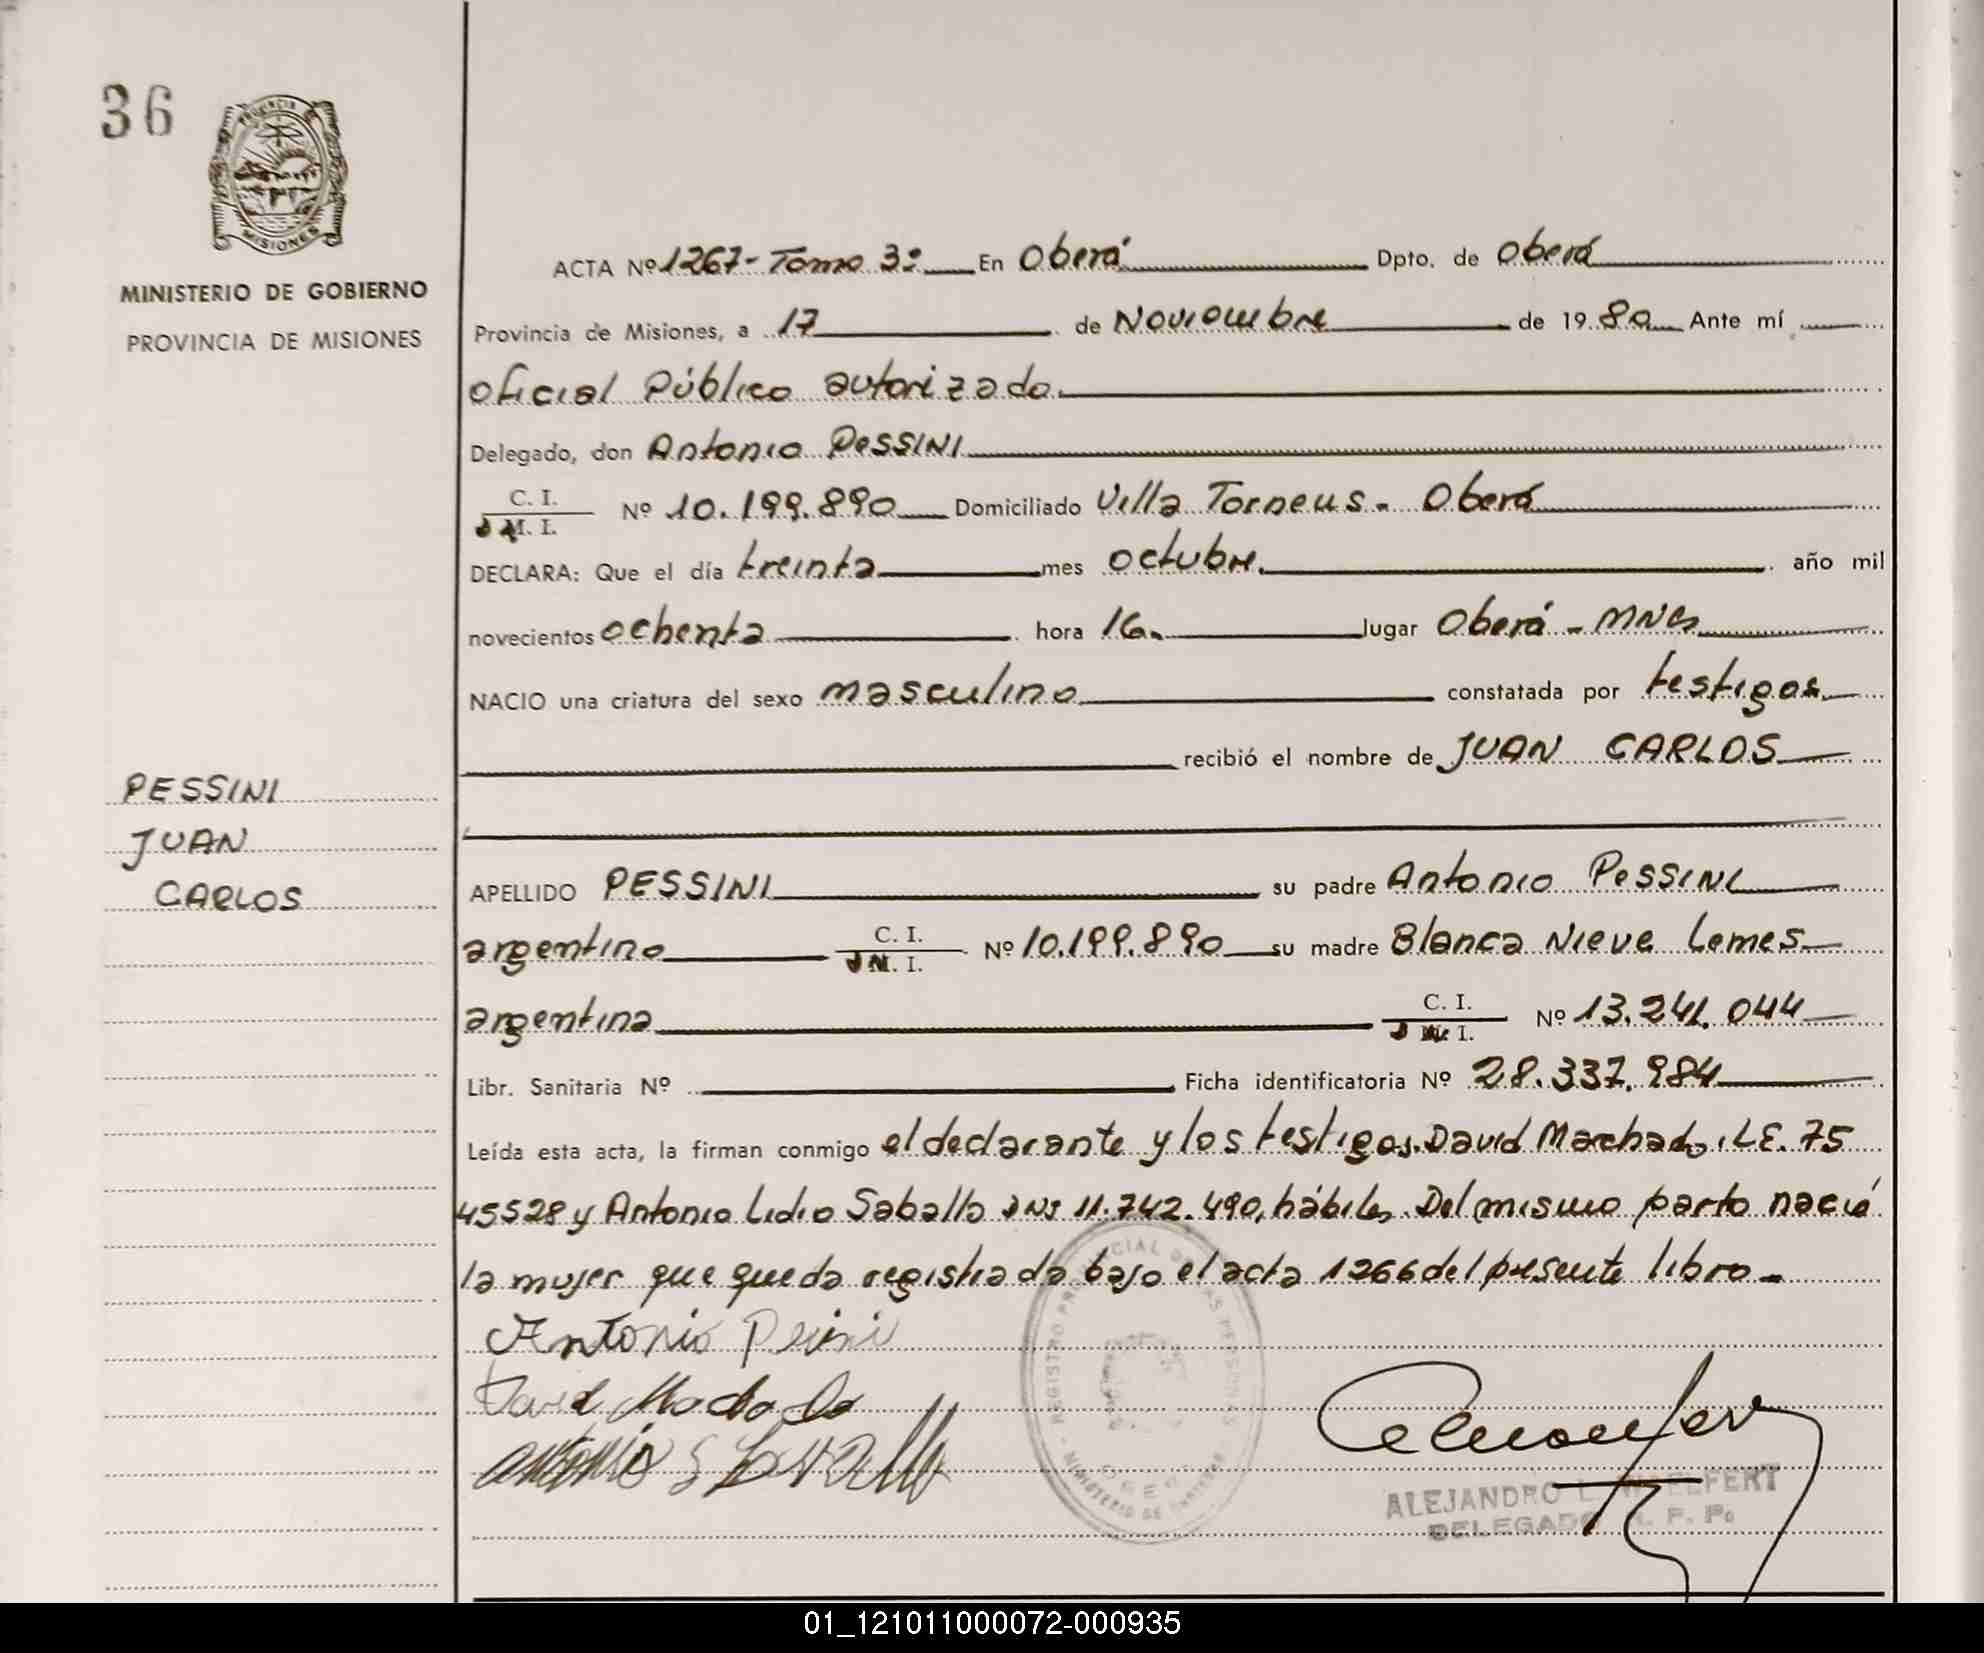 36
PROVINCIA
MISIONES
MINISTERIO DE GOBIERNO
PROVINCIA DE MISIONES
ACTA Nº 1267- Tomo 3º En Oberá Dpto. de Oberá
Provincia de Misiones, a 17 de Noviembre de 1980 Ante mí
Oficial Público autorizado
Delegado, don Antonio PESSINI
C. I.
M. I. Nº 10.199.890 Domiciliado Villa Torneus. Oberá
DECLARA: Que el día treinta mes octubre. año mil
novecientos ochenta hora 16. lugar Oberá - MNes
NACIO una criatura del sexo masculino constatada por testigos
recibió el nombre de JUAN CARLOS
PESSINI
JUAN
CARLOS
APELLIDO PESSINI su padre Antonio PESSINI
argentino C. I. M. I. Nº 10.199.890 su madre Blanca Nieve Lemes
argentina C. I. I. Nº 13.241.044
Libr. Sanitaria Nº Ficha identificatoria Nº 28.337.984
Leída esta acta, la firman conmigo el declarante y los testigos. David Machado, LE. 75
45528 y Antonio Lidio Saballo DNI 11.742.490, hábiles. Del mismo parto nació
la mujer que queda registrada bajo el acta 1266 del presente libro-
Antonio Pesini
David Machado
REGISTRO PROVINCIAL DE LAS PERSONAS
MINISTERIO DE
ALEJANDRO L. WAELFERT
DELEGADO R. P. P.
01_121011000072-000935